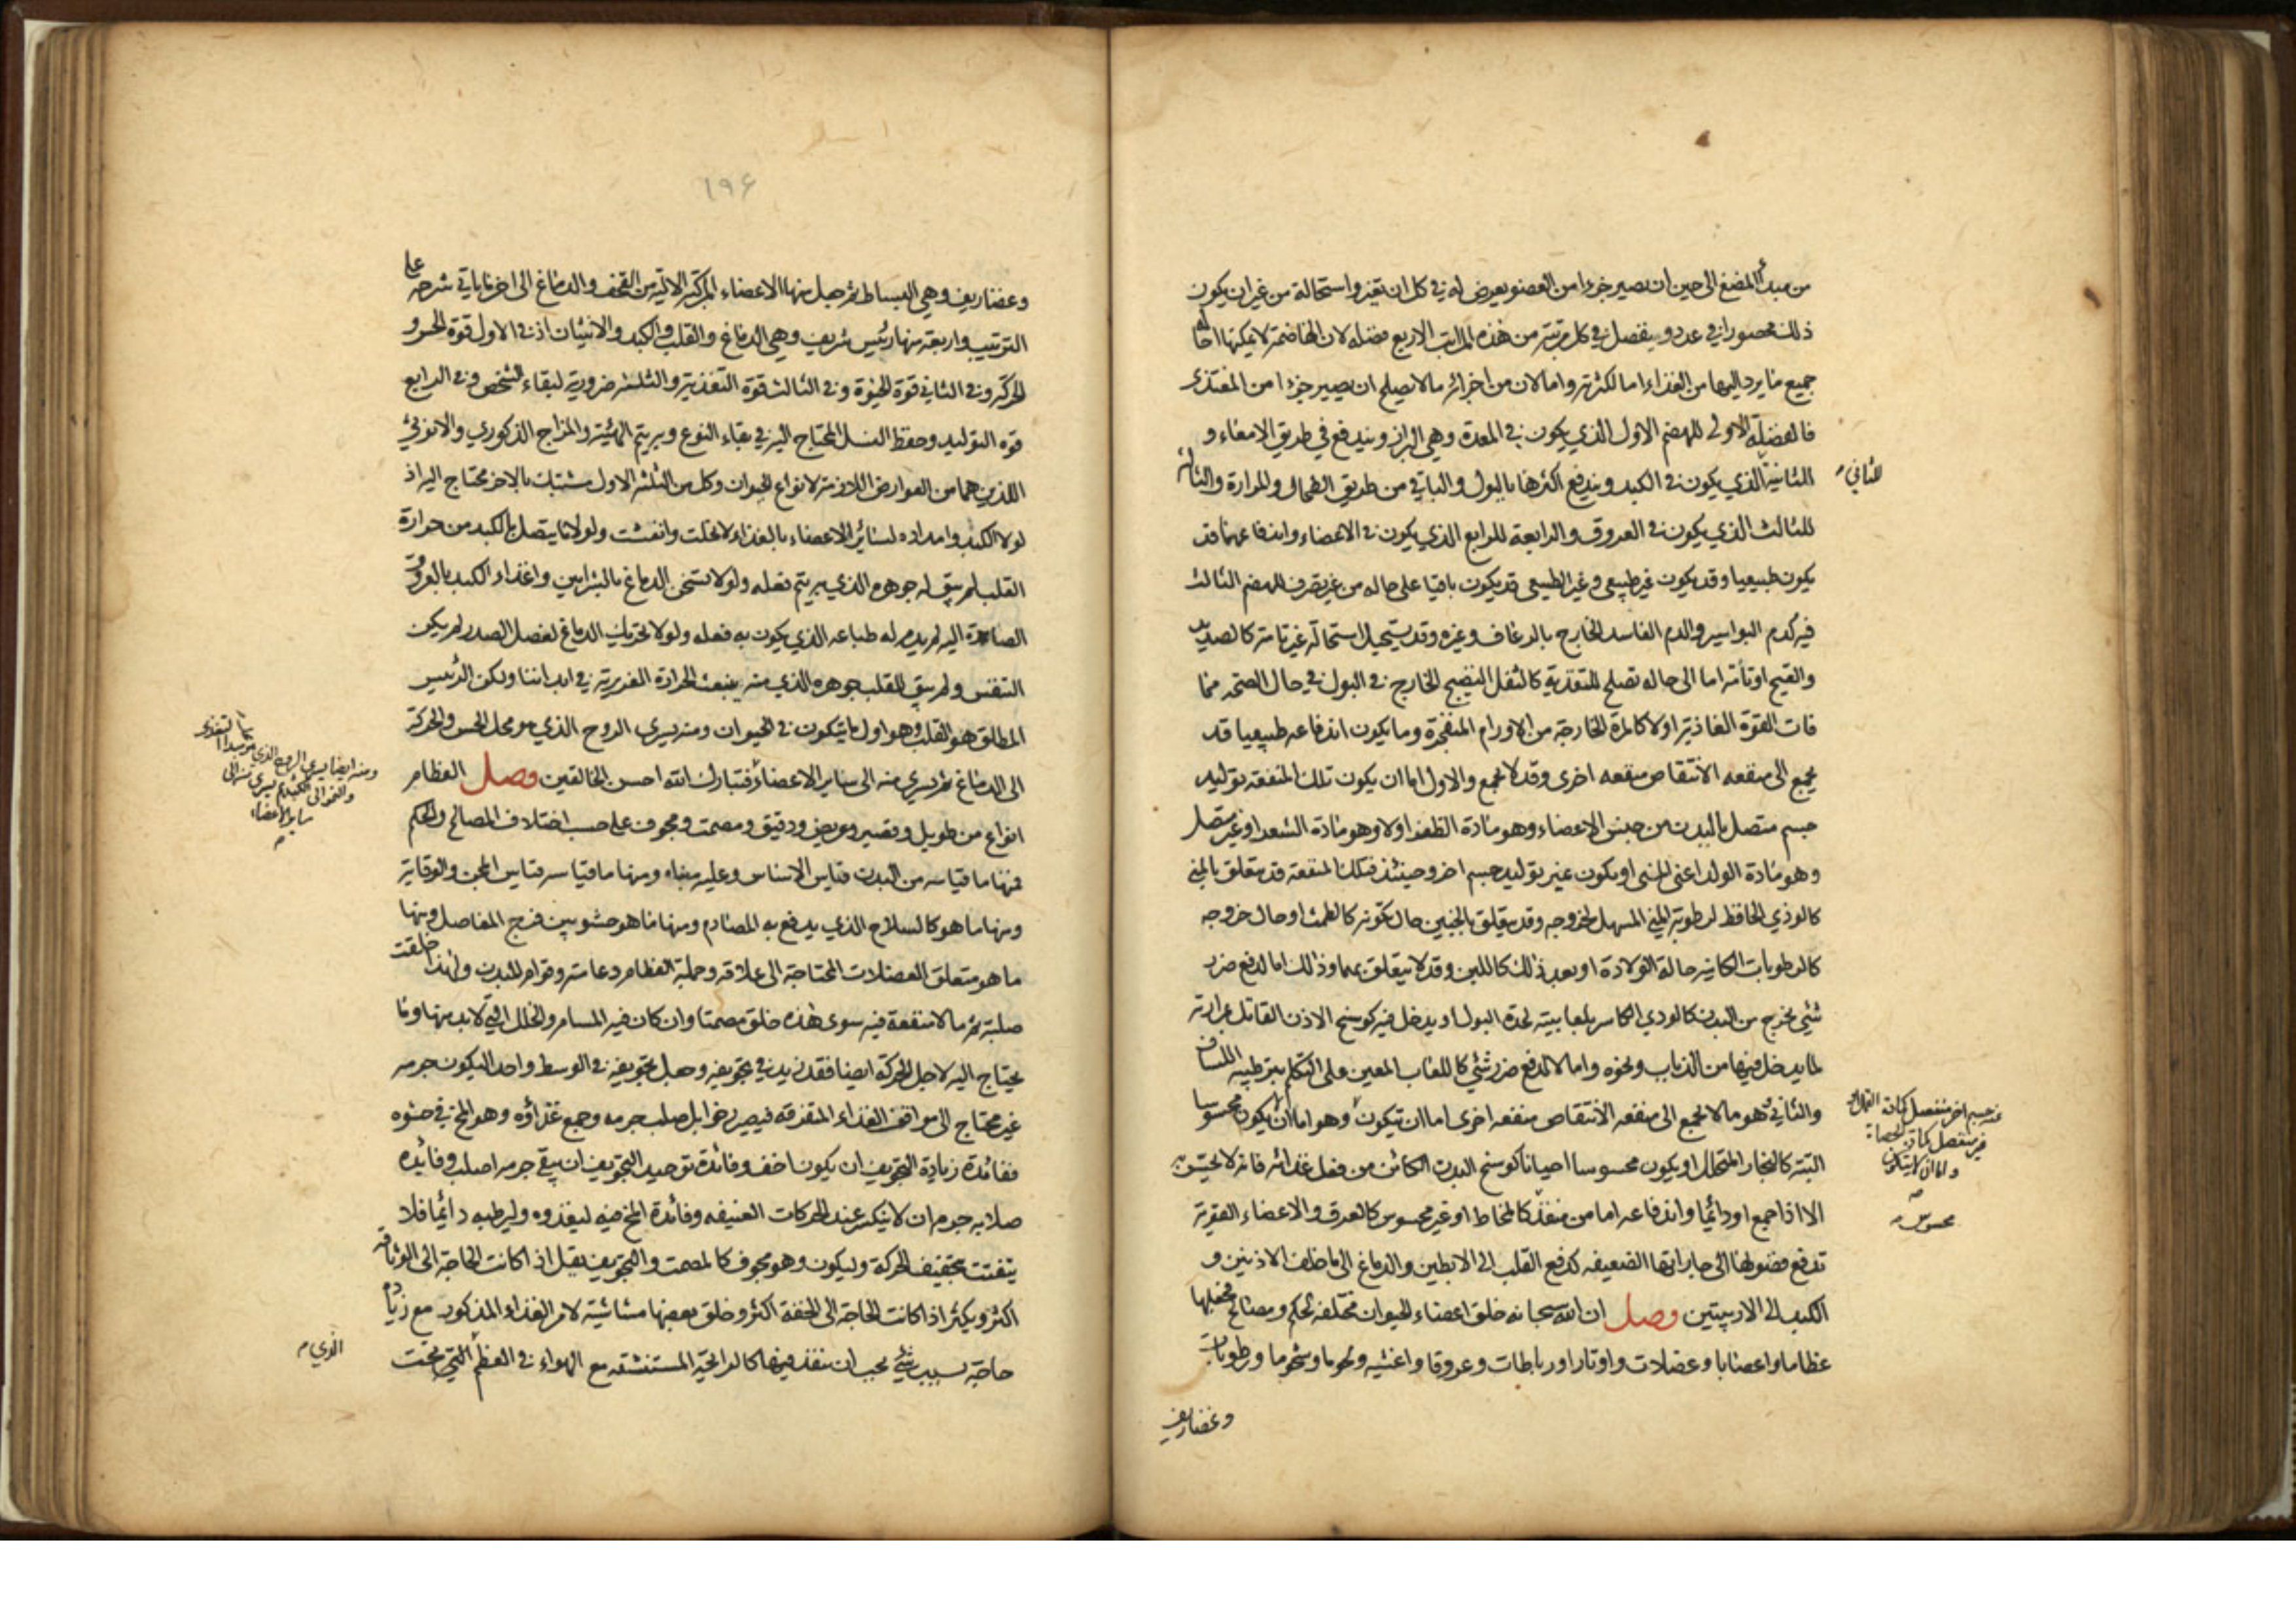 من مبدأ المضغ الى حين ان يصير جزءا من العضو يعرض له في كل ان تغير واستحالة من غير ان يكون
ذلك محصورا في عدد و ينفصل في كل مرتبة من هذه المراتب الاربع فضله لان الهاضمة لا يمكنها احالة
جميع ما يرد اليها من الغذاء اما لكثرته واما لان من اجزائه ما لا يصلح ان يصير جزءا من المغتذى
فالفضلة الاولى للهضم الاول الذي يكون في المعدة وهي البراز ويندفع في طريق الامعاء و
الثانية الذي يكون في الكبد ويندفع اكثرها بالبول والباقي من طريق الطحال والمرارة والثالثة
للثاني
للثالث الذي يكون في العروق والرابعة للرابع الذي يكون في الاعضاء واندفاعهما قد
يكون طبيعيا وقد يكون غير طبيعي وغير الطبيعى قد يكون باقيا على حاله من غير تصرف للهضم الثالث
فيه كدم البواسير والدم الفاسد الخارج بالرعاف وغيره وقد يستحيل استحالة غير تامة كالصديد
والقيح او تامة اما الى حاله تصلح للتغذية كالثفل النضيج الخارج في البول في حال الصحة مما
فات القوة الغاذية او لا كالمرة الخارجة من الاورام المنفجرة وما يكون اندفاعه طبيعيا قد
يجمع الى منفعه الانتقاص منفعه اخرى وقد لا يجمع والاول اما ان يكون تلك المنفعة بتوليد
جسم متصل بالبدن من جنس الاعضاء وهو مادة الظفر او لا وهو مادة الشعر او غير متصل
وهو مادة الولد اعنى المنى او يكون بغير توليد جسم اخر وحينئذ فتلك المنفعة قد يتعلق بالمني
كالوذي الحافظ لرطوبة المني المسهل لخروجه وقد يتعلق بالجنين حال تكونه كالطمث او حال خروجه
كالرطوبات الكائنة حالة الولادة او بعد ذلك كاللبن وقد لا يتعلق بهما وذلك اما لدفع ضرر
شئ يخرج من البدن كالودي الكاسر بلعابيته لحدة البول او يدخل فيه كوسخ الاذن القاتل بمرارته
لما يدخل فيها من الذباب ونحوه واما لا لدفع ضرر شئ كاللعاب المعين على التكلم بترطيبه اللسان
والثاني وهو ما لا يجمع الى منفعه الانتقاص منفعه اخرى اما ان يتكون وهو اما ان يكون محسوسا
عنه جسم اخر منفصل كمادة القمل او
غير منفصل كمادة الحصاة
واما ان لا يتكون
محسوس
البتة كالبخار المتحلل او يكون محسوسا احيانا كوسخ البدن الكائن من فضل غذائه فانه لا يحس به
الا اذا جمع او دائما واندفاعه اما من منفذ كالمخاط او غير محسوس كالعرق والاعضاء القوية
تدفع فضولها الى جاراتها الضعيفه كدفع القلب الى الابطين والدماغ الى ما خلف الاذنين و
الكبد الى الاربيتين وصل ان الله سبحانه خلق اعضاء الحيوان مختلفه لحكم ومصالح فجعلها
عظاما واعصابا وعضلات واوتارا ورباطات وعروقا واغشيه ولحوما وشحوما ورطوبات
وغضاريف
١٩٤
وغضاريف وهي البسائط ثم جعل منها الاعضاء المركبة الالية من القحف والدماغ الى اخر ما ياتي شرحه على
الترتيب واربعة منها رئيس شريف وهي الدماغ والقلب والكبد والانثيان اذ في الاول قوة الحس و
الحركة وفي الثاني قوة الحيوة وفي الثالث قوة التغذية والثلثة ضرورية لبقاء الشخص وفي الرابع
قوه التوليد وحفظ النسل المحتاج اليه في بقاء النوع وبه يتم الهيئة والمزاج الذكوري والانوثي
اللذين هما من العوارض اللازمة لانواع الحيوان وكل من الثلثه الاول مشتبك بالاخر محتاج اليه اذ
لولا الكبد وامداده لسائر الاعضاء بالغذاء لانحلت وانفشت ولولا ما يتصل بالكبد من حرارة
القلب لم يبق له جوهره الذي به يتم فعله ولولا تسخن الدماغ بالشرايين واغذاء الكبد بالعروق
الصاعدة اليه لم يدم له طباعه الذي يكون به فعله ولولا تحريك الدماغ لعضل الصدر لم يكن
التنفس ولم يبق للقلب جوهره الذي منه ينبعث الحرارة الغريزية في ابداننا ولكن الرئيس
المطلق هو القلب وهو اول ما يتكون في الحيوان ومنه يسري الروح الذي هو محل الحس والحركة
ومنه ايضا يسرى الروح الذي هو مبدا التغذى
والنمو الى الكبد ثم يسرى منه الى
ساير الاعضاء
الى الدماغ ثم يسري منه الى ساير الاعضاء فتبارك الله احسن الخالقين وصل العظام
انواع من طويل وقصير وعريض ودقيق ومصمت ومجوف على حسب اختلاف المصالح والحكم
فمنها ما قياسه من البدن قياس الاساس وعليه مبناه ومنها ما قياسه قياس المجن والوقاية
ومنها ما هو كالسلاح الذي يدفع به المصادم ومنها ما هو حشو بين فرج المفاصل ومنها
ما هو متعلق العضلات المحتاجة الى علاقه وجملة العظام دعامة وقوام للبدن ولهذا خلقت
صلبة ثم ما لا منفعة فيه سوى هذه خلق مصمتا وان كان فيه المسام والخلل التي لا بد منها وما
يحتاج اليه لاجل الحركة ايضا فقد زيد في تجويفه وجعل تجويفه في الوسط واحدا ليكون جرمه
غير محتاج الى مواقف الغذاء المتفرقه فيصير رخوا بل صلب جرمه وجمع غذاؤه وهو المخ في حشوه
ففائدة زيادة التجويف ان يكون اخف وفائدة توحيد التجويف ان يبقى جرمه اصلب وفائدة
صلابه جرمه ان لا ينكسر عند الحركات العنيفه وفائدة المخ فيه ليغذوه وليرطبه دائما فلا
يتفتت بتجفيف الحركة وليكون وهو مجوف كالمصمت والتجويف يقل اذا كانت الحاجة الى الوثاقه
اكثر ويكثر اذا كانت الحاجة الى الخفة اكثر وخلق بعضها مشاشية لامر الغذاء المذكور مع زيادة
حاجة بسبب شئ يجب ان ينفذ فيها كالرائحة المستنشقه مع الهواء في العظم التي تحت
الذي